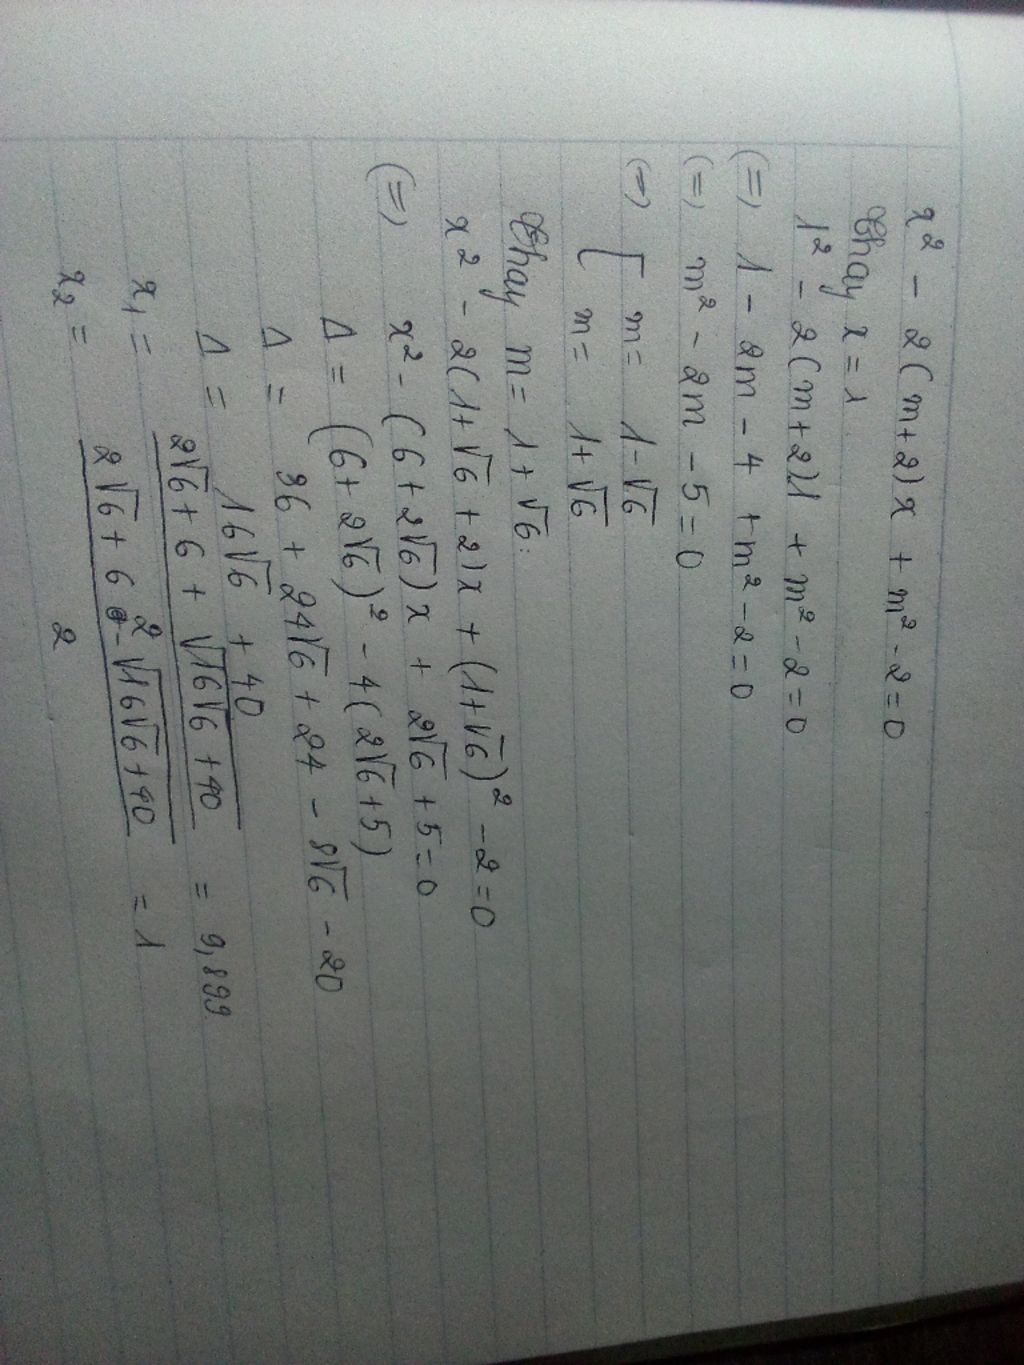 x² - 2(m+2)x + m² - 2 = 0
Thay x = 1
1² - 2(m+2)1 + m² - 2 = 0
(=) 1 - 2m - 4 + m² - 2 = 0
(=) m² - 2m - 5 = 0
(=) [ m = 1 - √6
m = 1 + √6
Thay m = 1 + √6:
x² - 2(1+√6 + 2)x + (1+√6)² - 2 = 0
(=) x² - (6 + 2√6)x + 2√6 + 5 = 0
Δ = (6 + 2√6)² - 4(2√6 + 5)
Δ = 36 + 24√6 + 24 - 8√6 - 20
Δ = 16√6 + 40
x₁ = (2√6 + 6 + √(16√6 + 40)) / 2 = 9,899
x₂ = (2√6 + 6 - √(16√6 + 40)) / 2 = 1